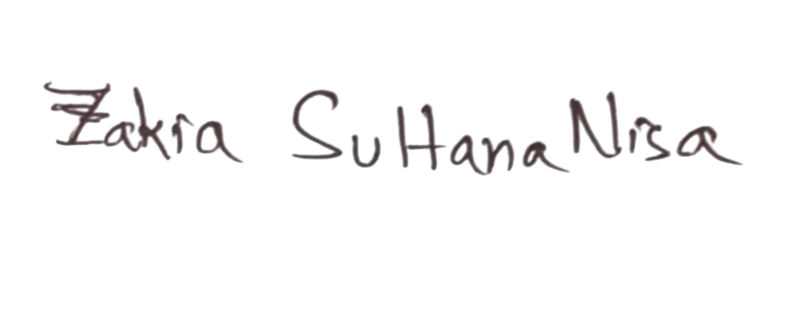 Zakia Sultana Nisa